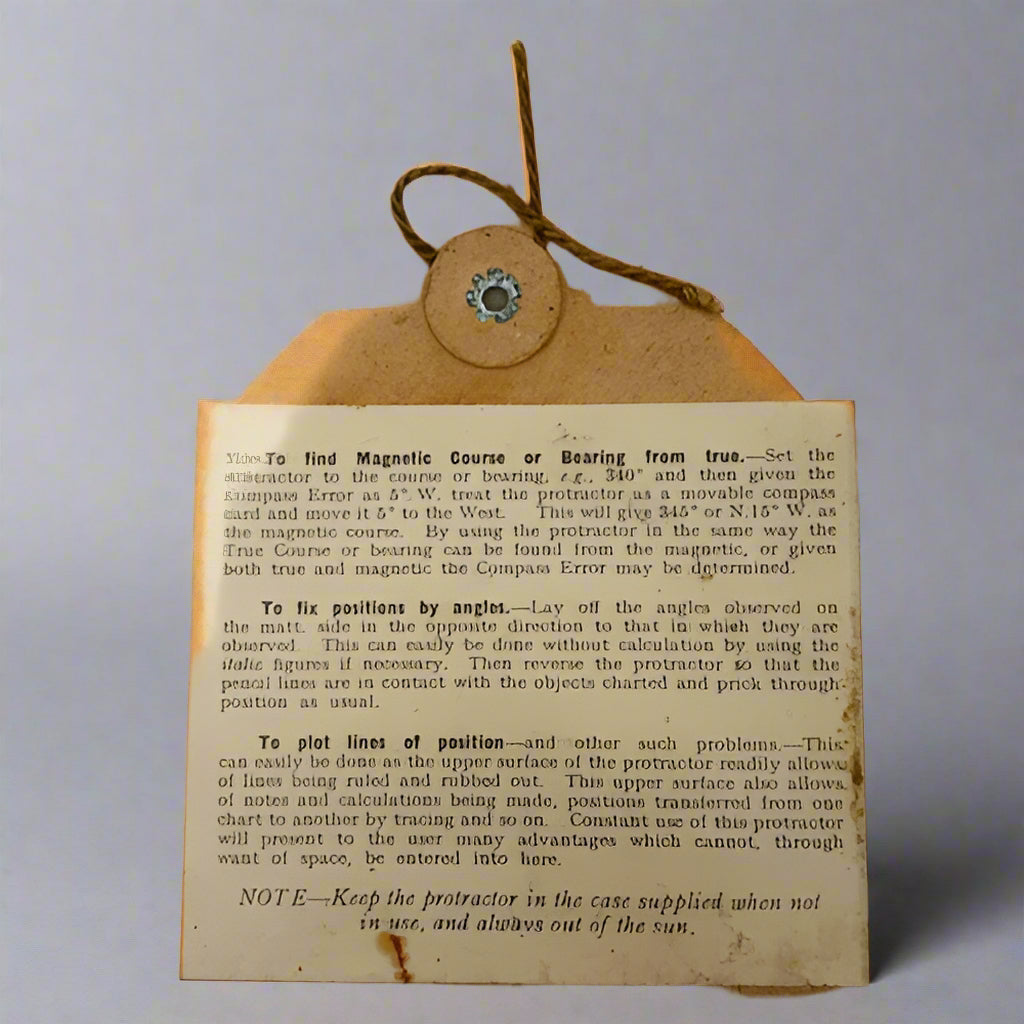 To find Magnetic Course or Bearing from true.—Set the
protractor to the course or bearing, e.g., 340° and then given the
Compass Error as 5° W. treat the protractor as a movable compass
card and move it 5° to the West. This will give 345° or N.15° W. as
the magnetic course. By using the protractor in the same way the
True Course or bearing can be found from the magnetic, or given
both true and magnetic the Compass Error may be determined.
To fix positions by angles.—Lay off the angles observed on
the matt. side in the opposite direction to that in which they are
observed. This can easily be done without calculation by using the
italic figures if necessary. Then reverse the protractor so that the
pencil lines are in contact with the objects charted and prick through
position as usual.
To plot lines of position—and other such problems.—This
can easily be done as the upper surface of the protractor readily allows
of lines being ruled and rubbed out. This upper surface also allows
of notes and calculations being made, positions transferred from one
chart to another by tracing and so on. Constant use of this protractor
will present to the user many advantages which cannot, through
want of space, be entered into here.
NOTE—Keep the protractor in the case supplied when not
in use, and always out of the sun.